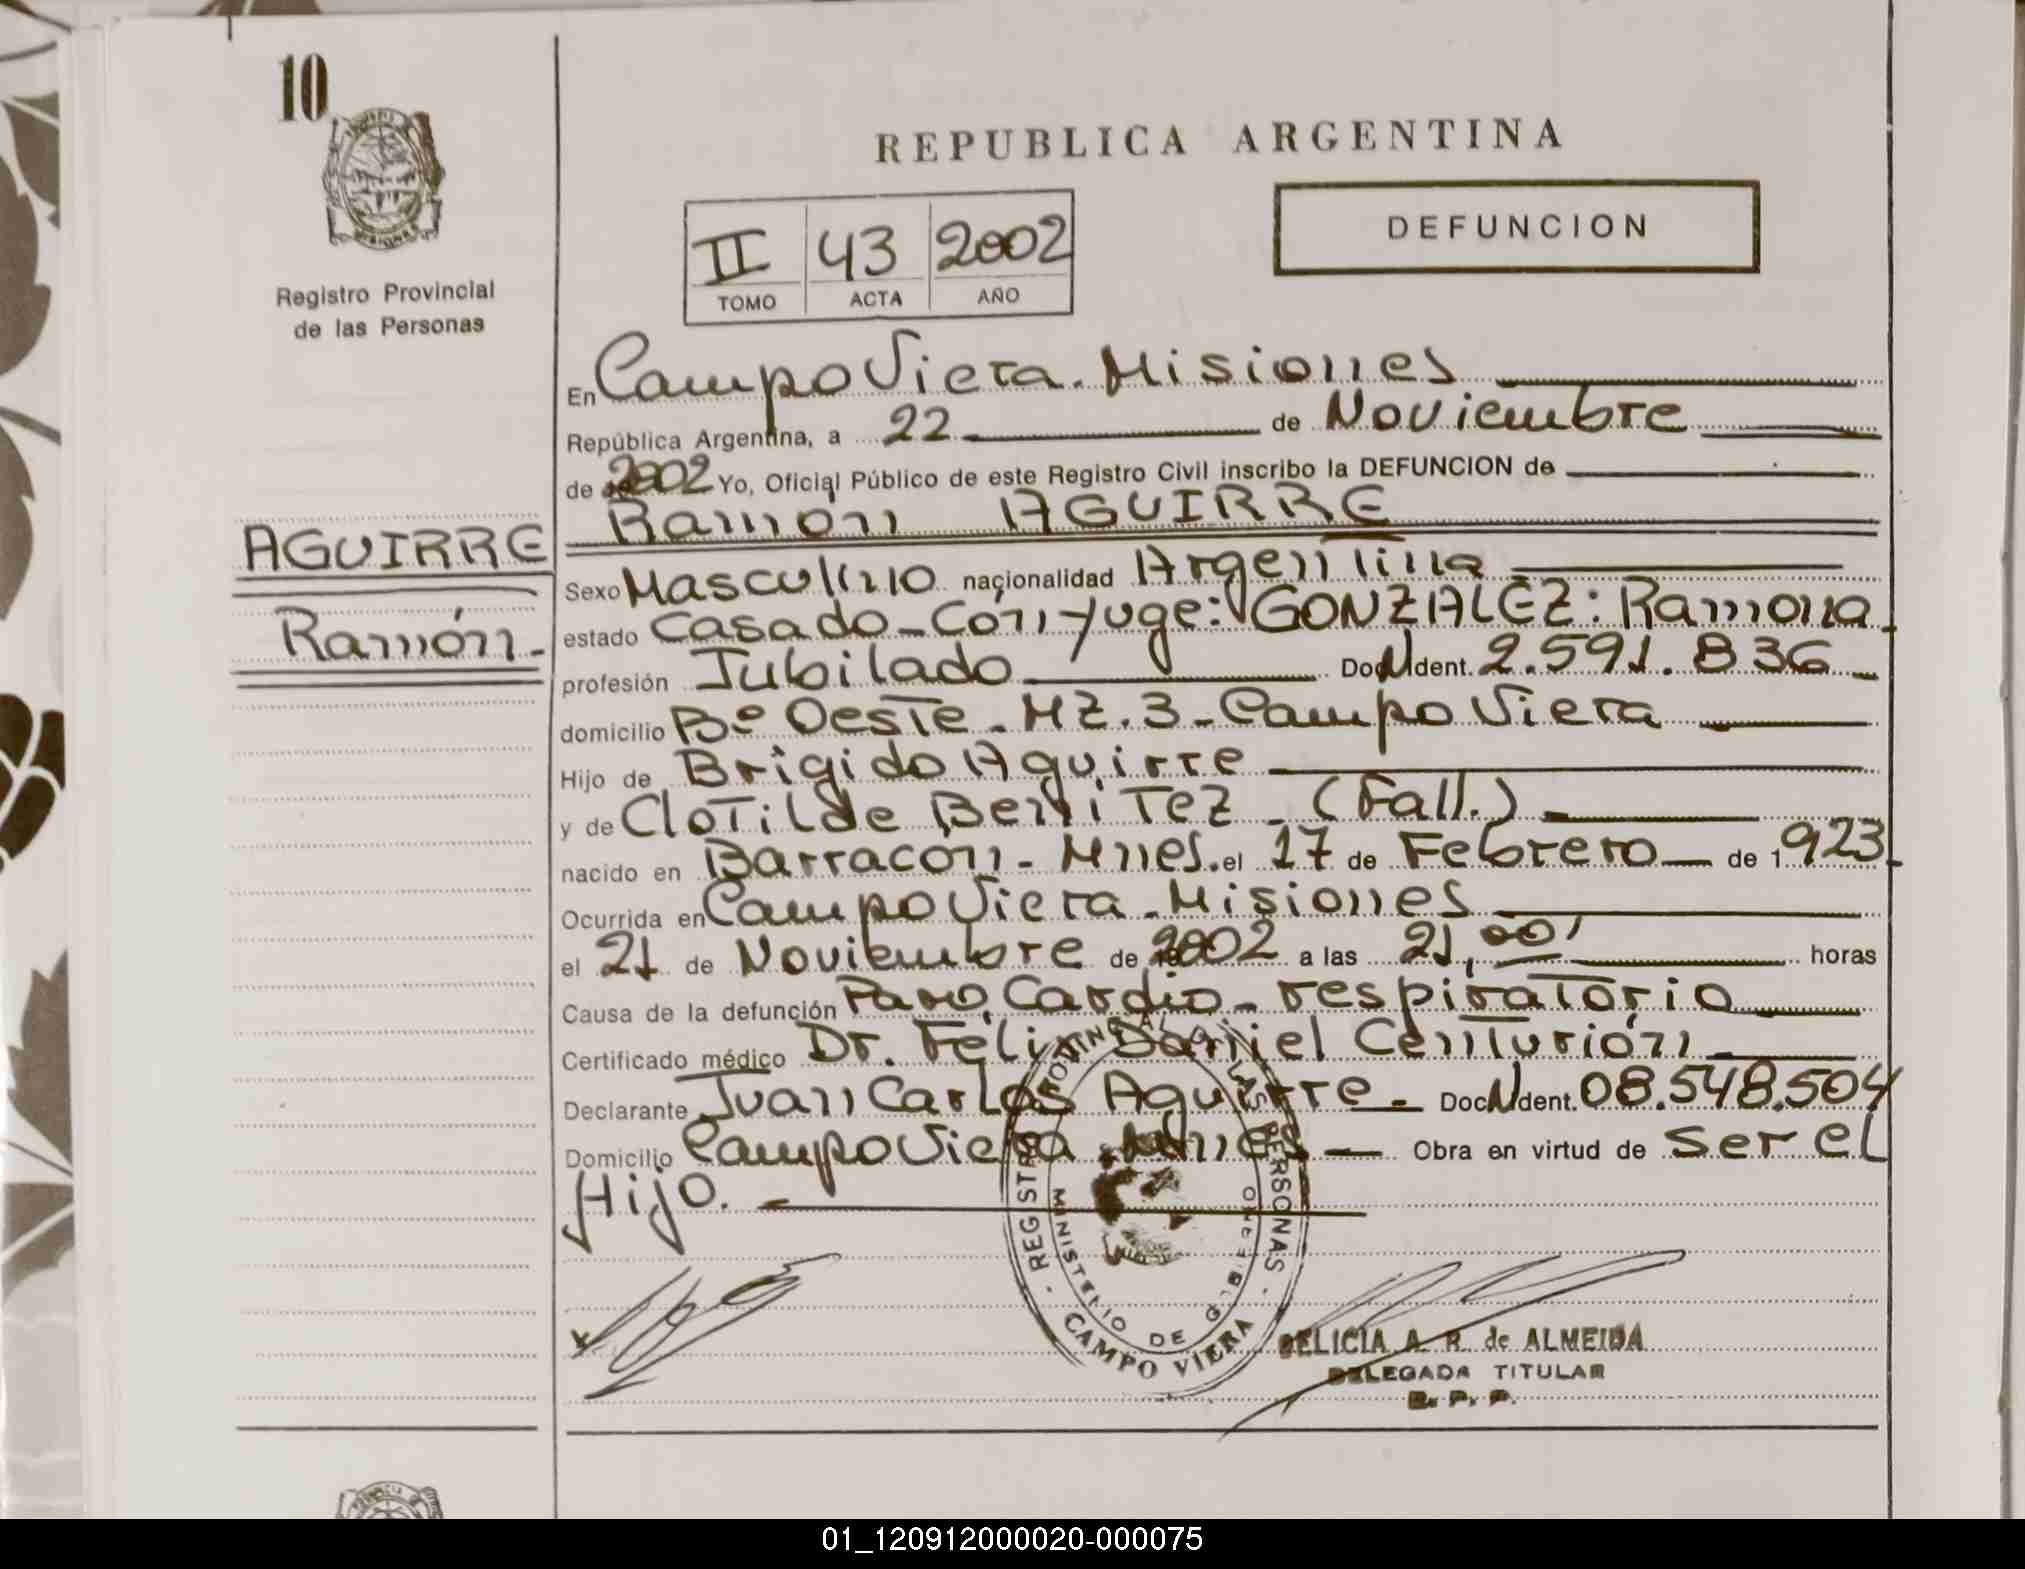 10
REPUBLICA ARGENTINA
DEFUNCION
II 43 2002
TOMO ACTA AÑO
Registro Provincial
de las Personas
AGUIRRE
Ramón.-
En Campo Viera. Misiones
República Argentina, a 22 de Noviembre
de 2002 Yo, Oficial Público de este Registro Civil inscribo la DEFUNCION de
Ramón AGUIRRE
Sexo Masculino nacionalidad Argentina
estado Casado-Conyuge: GONZALEZ: Ramona.
profesión Jubilado Doc N Ident. 2.591.836
domicilio Bº Oeste - MZ. 3 - Campo Viera
Hijo de Brigido Aguirre
y de Clotilde Benitez - (Fall.)
nacido en Barracon - Mnes. el 17 de Febrero de 1923
Ocurrida en Campo Viera - Misiones
el 21 de Noviembre de 2002 a las 21,00' horas
Causa de la defunción Paro Cardio - respiratorio
Certificado médico Dr. Félix Daniel Centurión
Declarante Juan Carlos Aguirre. Doc N Ident. 08.548.504
Domicilio Campo Viera Mnes Obra en virtud de ser el
Hijo.
REGISTRO PROVINCIAL DE LAS PERSONAS
MINISTERIO DE GOBIERNO
CAMPO VIERA
DELICIA A. R. de ALMEIDA
DELEGADA TITULAR
R. P. P.
01_120912000020-000075